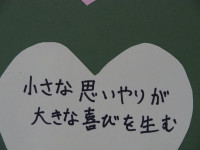 小さな思いやりが
大きな喜びを生む